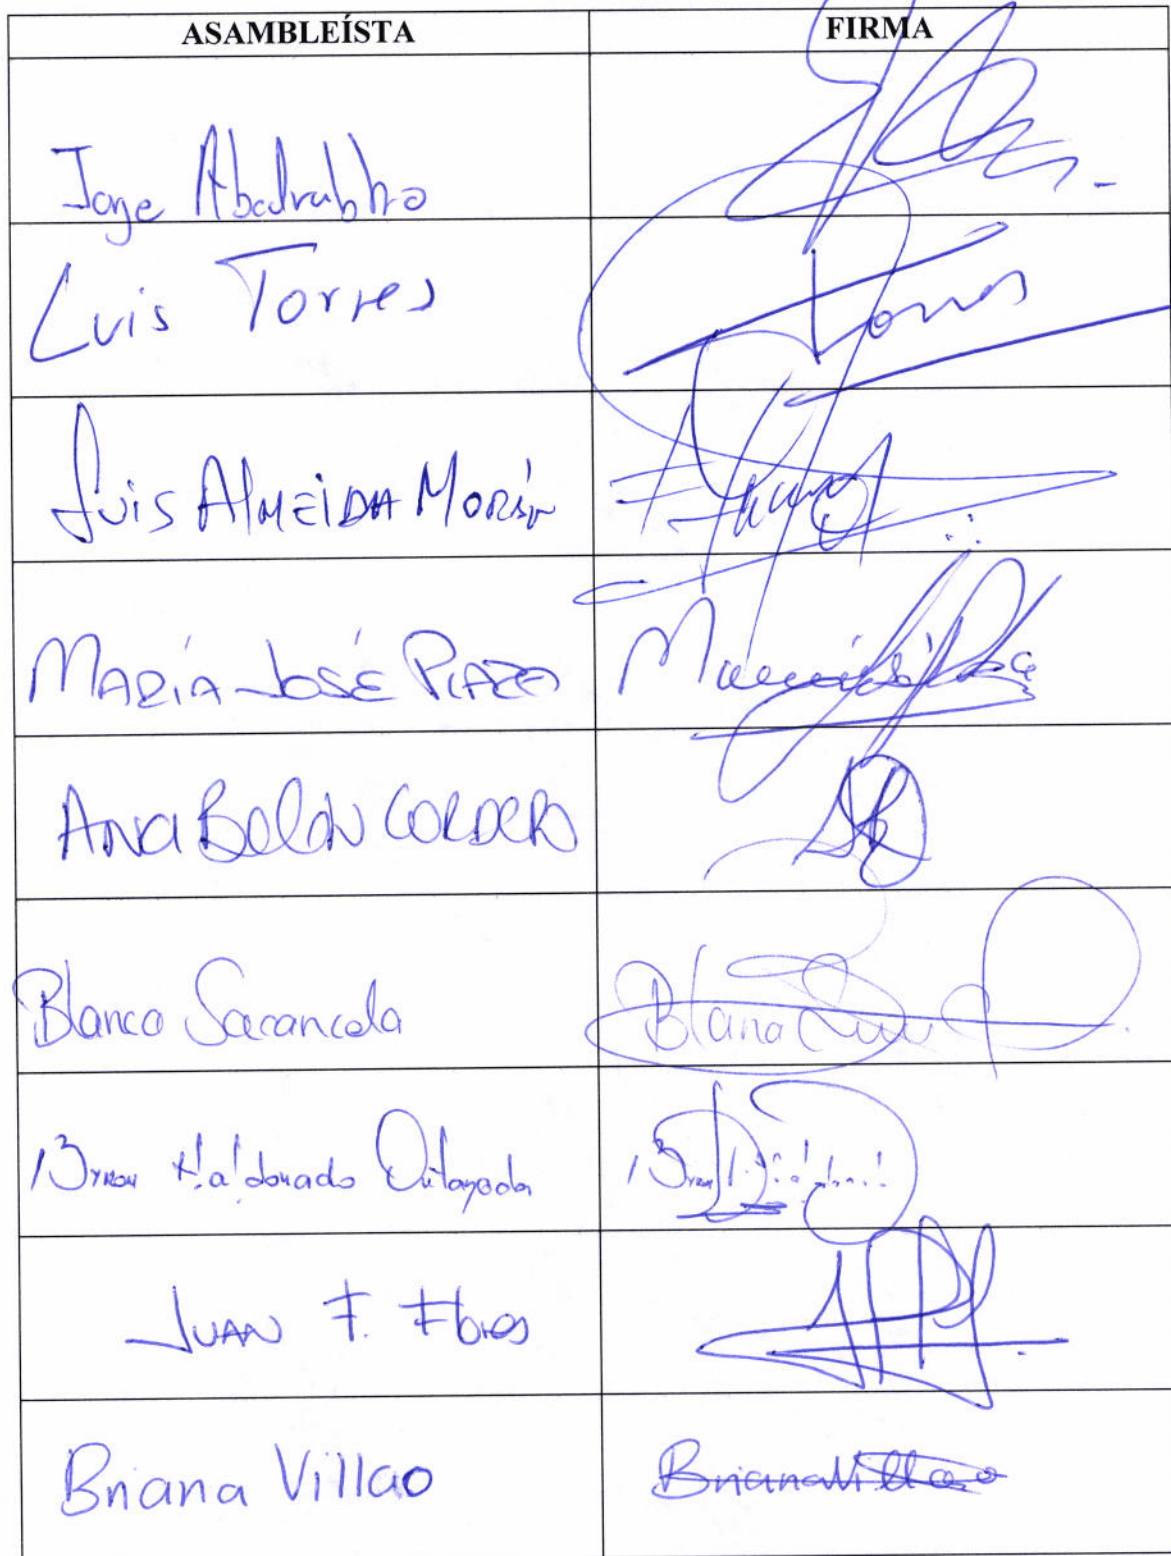 ASAMBLEÍSTA FIRMA
Jorge Abedrabbo
Luis Torres Torres
Luis ALMEIDA MORÁN
MARÍA JOSÉ PLAZA María José Plaza
ANA BELÉN CORDERO
Blanca Sacancela Blanca
Byron Maldonado Ontaneda Byron Maldonado
JUAN F. Flores
Briana Villao Briana Villao